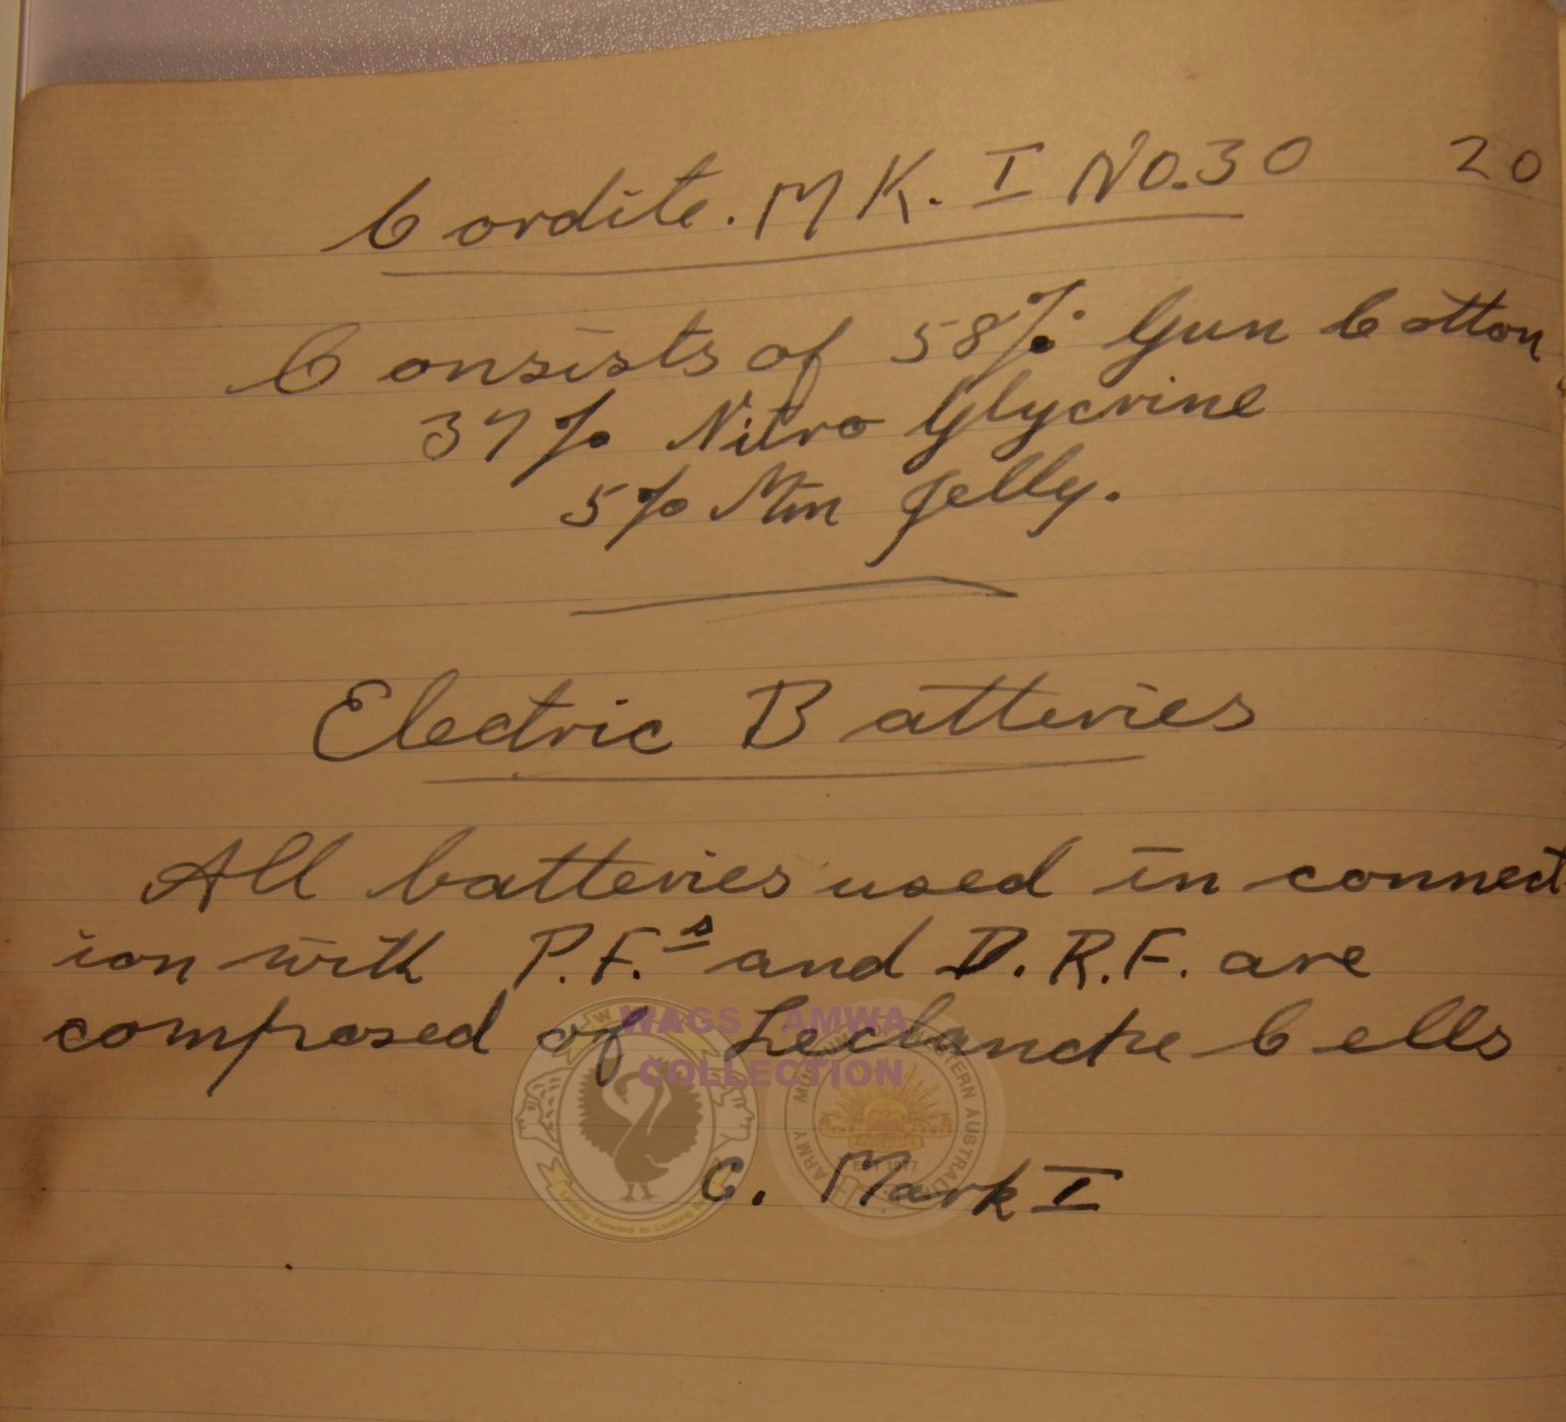 Cordite. MK. I NO. 30 20
Consists of 58% Gun Cotton
37% Nitro Glycerine
5% Min Jelly.
Electric Batteries
All batteries used in connect
ion with P.F.s and D.R.F. are
composed of Leclanche Cells
C. Mark I
WAGS AMWA
COLLECTION